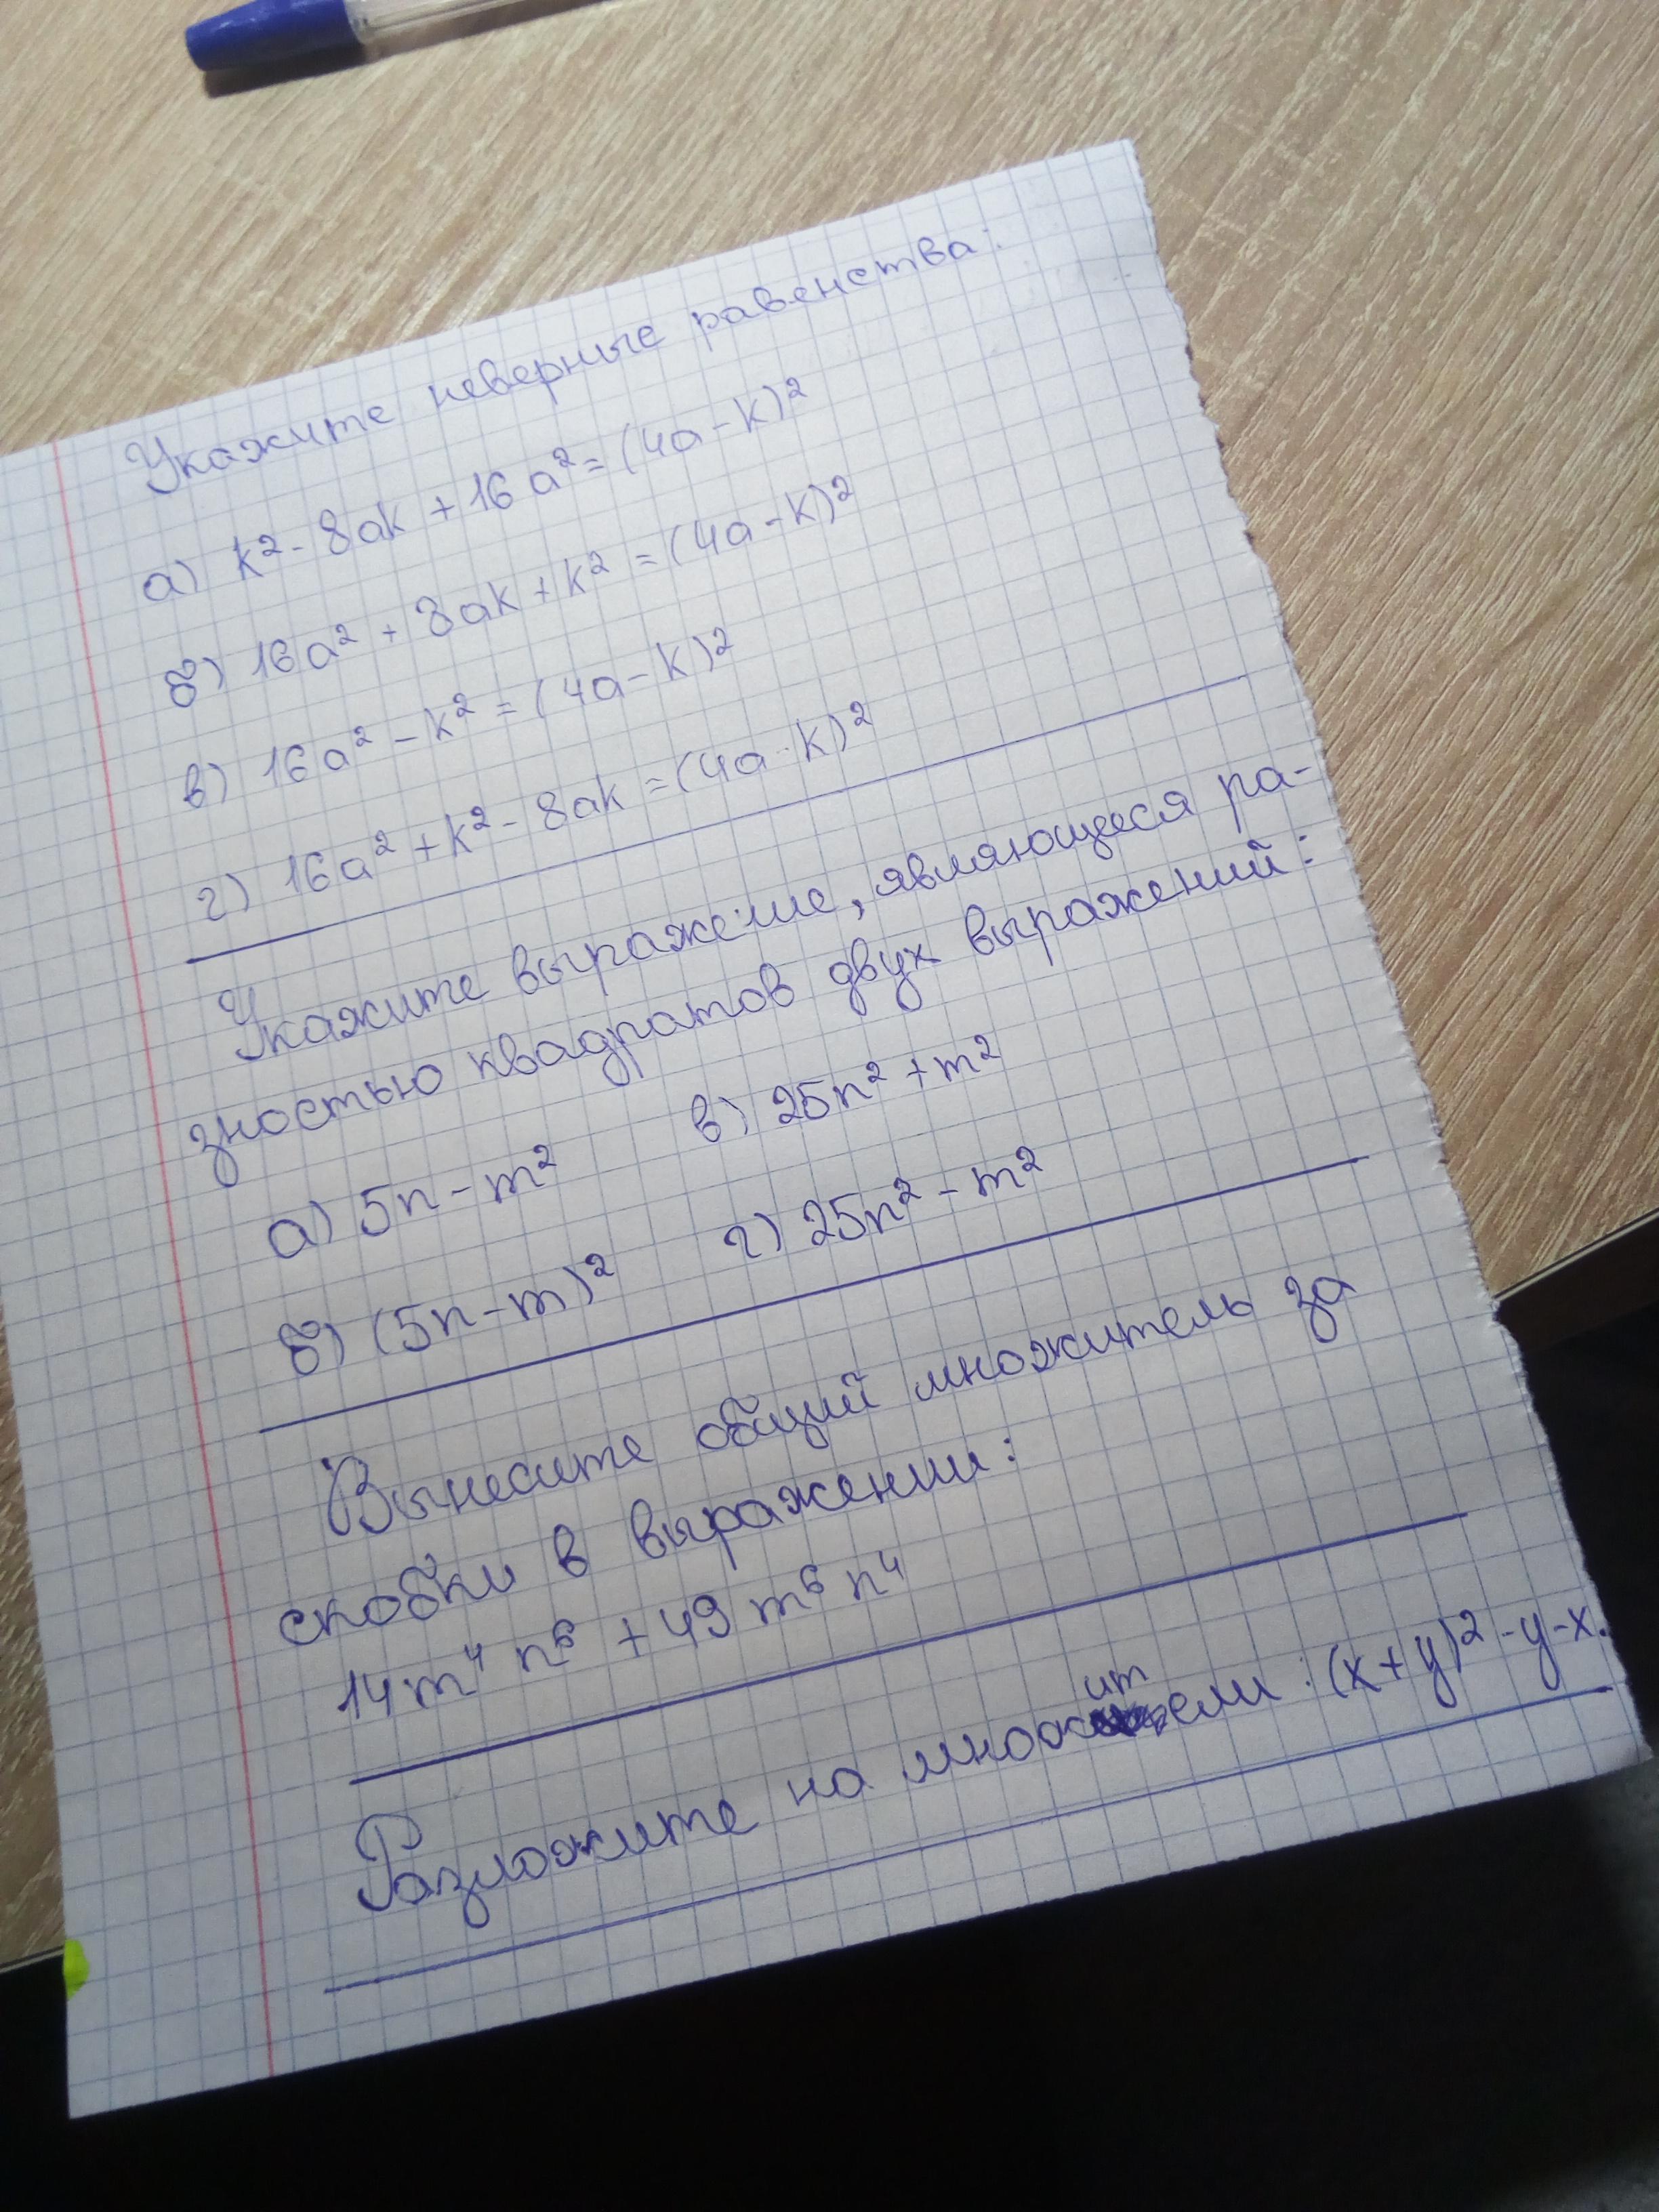 Укажите неверные равенства:
а) k² - 8ak + 16a² = (4a - k)²
б) 16a² + 8ak + k² = (4a - k)²
в) 16a² - k² = (4a - k)²
г) 16a² + k² - 8ak = (4a - k)²
Укажите выражение, являющееся ра-
зностью квадратов двух выражений:
а) 5n - m² в) 25n² + m²
б) (5n - m)² г) 25n² - m²
Вынесите общий множитель за
скобки в выражении:
14m⁴ n⁶ + 49m⁶ n⁴
Разложите на множители: (x+y)² - y - x.